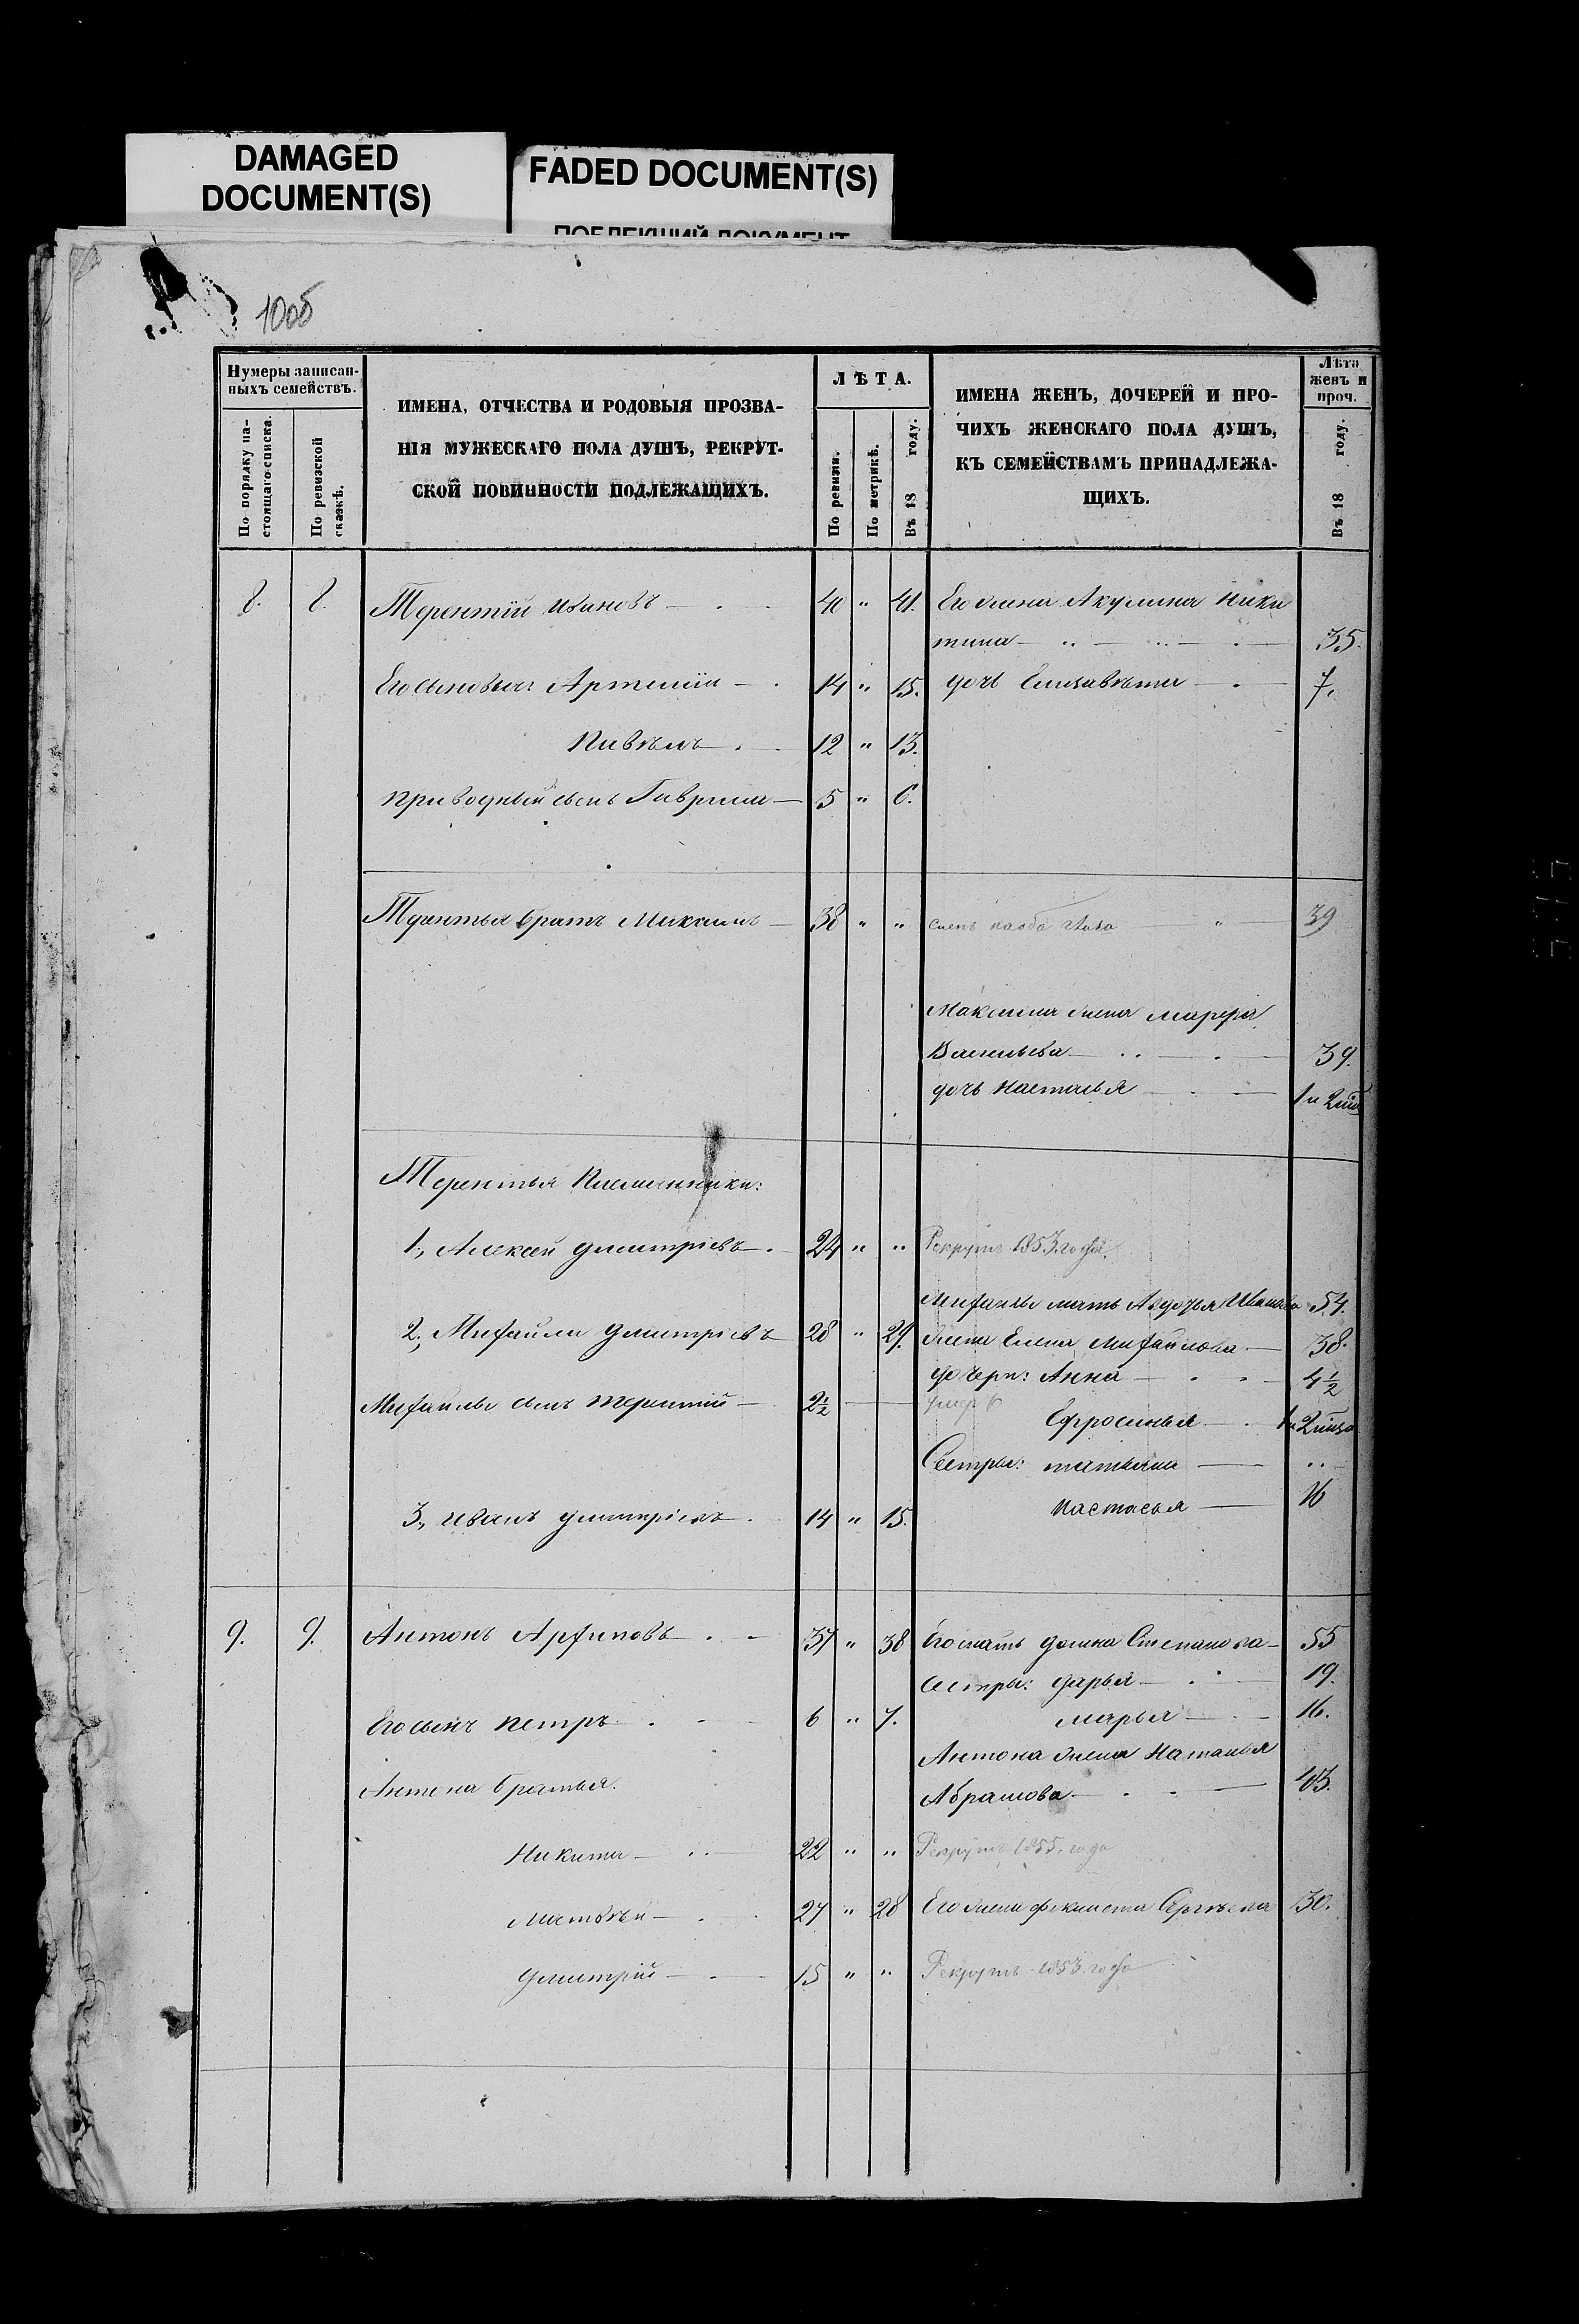 DAMAGED
DOCUMENT(S)
FADED DOCUMENT(S)
ПОБЛЕКШИЙ ДОКУМЕНТ
10об
Нумеры записан-
ныхъ семействъ.
По порядку на-
стоящаго списка.
По ревизской
сказкѣ.
ИМЕНА, ОТЧЕСТВА И РОДОВЫЯ ПРОЗВА-
НІЯ МУЖЕСКАГО ПОЛА ДУШЪ, РЕКРУТ-
СКОЙ ПОВИННОСТИ ПОДЛЕЖАЩИХЪ.
ЛѢТА.
По ревизіи.
По метрикѣ.
Въ 18 году.
ИМЕНА ЖЕНЪ, ДОЧЕРЕЙ И ПРО-
ЧИХЪ ЖЕНСКАГО ПОЛА ДУШЪ,
КЪ СЕМЕЙСТВАМЪ ПРИНАДЛЕЖА-
ЩИХЪ.
Лѣта
женъ и
проч.
Въ 18 году.
8. 8. Терентій Ивановъ 40 " 41. Его жена Акулина Ники
тина 35.
Его сыновья: Артемій 14 " 15. дочь Елизавѣта 7.
Павелъ 12 " 13.
приводный сынъ Гаврила 5 " 6.
Терентья братъ Максимъ 38 " " 39
Максима жена Марфа
Васильева 39.
дочь Настасья 1 и 2
Терентья Племянники:
1, Алексей Дмитріевъ 24 " " Рекрутъ 1853. года.
Михайлы мать Авдотья Иванова 54.
2, Михайла Дмитріевъ 28 " 29. жена Елена Михайлова 38.
дочери: Анна 4½
Михайлы сынъ Терентій 2½ умеръ
Ефросинья 1 и 2
Сестры: Татьяна "
Настасья 16
3, Иванъ Дмитріевъ 14 " 15.
9. 9. Антонъ Архиповъ 37 " 38 Его мать Домна Степанова 55
сестры: Дарья 19.
Его сынъ Петръ 6 " 7. Марья 16.
Антона жена Наталья
Антона братья. Абрамова 43.
Никита 22 " " Рекрутъ 1855. года
Матвѣй 27 " 28 Его жена Феклиста Сергѣева 30.
Дмитрій 15 " " Рекрутъ 1853. года